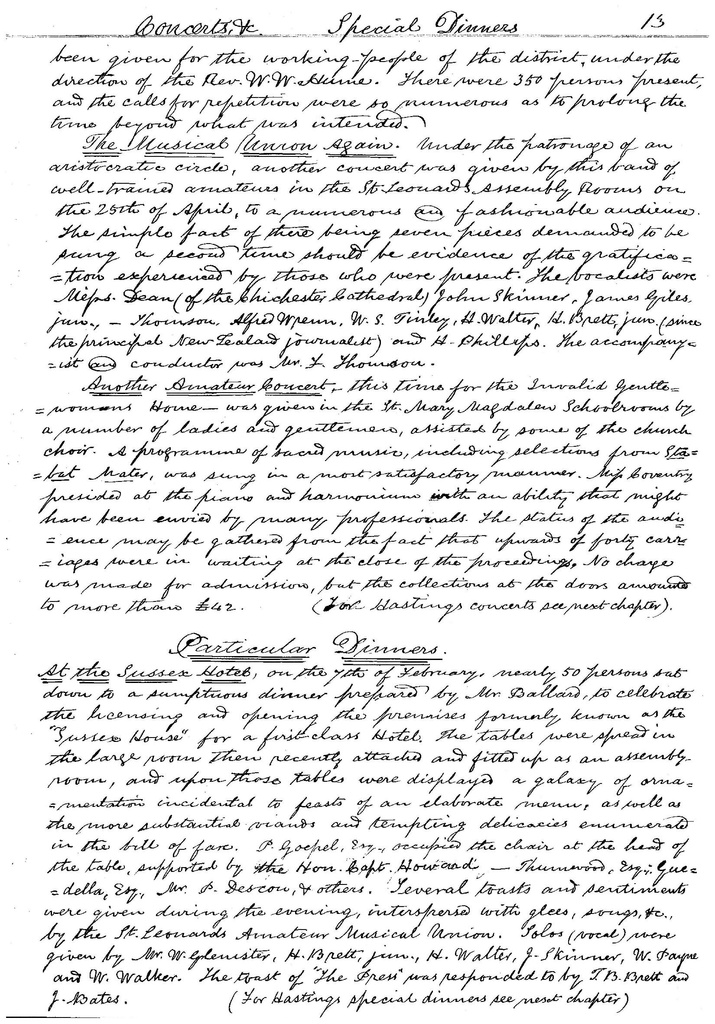 Concerts, &c. Special Dinners 13
been given for the working-people of the district, under the
direction of the Rev. W. W. Hume. There were 350 persons present,
and the calls for repetition were so numerous as to prolong the
time beyond what was intended.
The Musical Union Again. Under the patronage of an
aristocratic circle, another concert was given by this band of
well-trained amateurs in the St. Leonards Assembly Rooms on
the 25th of April, to a numerous an fashionable audience.
The simple fact of there being seven pieces demanded to be
sung a second time should be evidence of the gratifica=
=tion experienced by those who were present. The vocalists were
Messrs. Dean (of the Chichester Cathedral) John Skinner, James Giles
jun., — Thomson, Alfred Wrenn, W. S. Tinley, H. Walter, H. Brett, jun. (since
the principal New Zealand journalist) and H. Phillips. The accompany=
=ist and conductor was Mr. L. Thomson.
Another Amateur Concert, - this time for the Invalid Gentle=
=womans Home — was given in the St. Mary Magdalen Schoolrooms by
a number of ladies and gentlemen, assisted by some of the church
choir. A programme of sacred music, including selections from Sta=
=bat Mater, was sung in a most satisfactory manner. Miss Coventry
presided at the piano and harmonium with an ability that might
have been envied by many professionals. The status of the audi=
=ence may be gathered from the fact that upwards of forty carr=
=iages were in waiting at the close of the proceedings. No charge
was made for admission, but the collections at the doors amounted
to more than £42. (For Hastings concerts see next chapter).
Particular Dinners.
At the Sussex Hotel, on the 7th of February, nearly 50 persons sat
down to a sumptuous dinner prepared by Mr. Ballard, to celebrate
the licensing and opening the premises formerly known as the
"Sussex House" for a first-class Hotel. The tables were spread in
the large room then recently attached and fitted up as an assembly-
room, and upon those tables were displayed a galaxy of orna=
=mentation incidental to feasts of an elaborate menu, as well as
the more substantial viands and tempting delicacies enumerated
in the bill of fare. P. Goepel, Esq., occupied the chair at the head of
the table, supported by the Hon. Capt. Howard, — Thurwood, Esq., Gue=
=della, Esq., Mr. P. Descou, & others. Several toasts and sentiments
were given during the evening, interspersed with glees, songs, &c.,
by the St. Leonards Amateur Musical Union. Solos (vocal) were
given by Mr. W. Glenister, H. Brett, jun., H. Walter, J. Skinner, W. Payne
and W. Walker. The toast of "The Press" was responded to by T. B. Brett and
J. Bates. (For Hastings special dinners see next chapter)